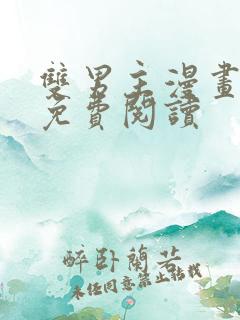 雙男主漫畫
免費閱讀
醉臥蘭若
未經同意禁止轉載